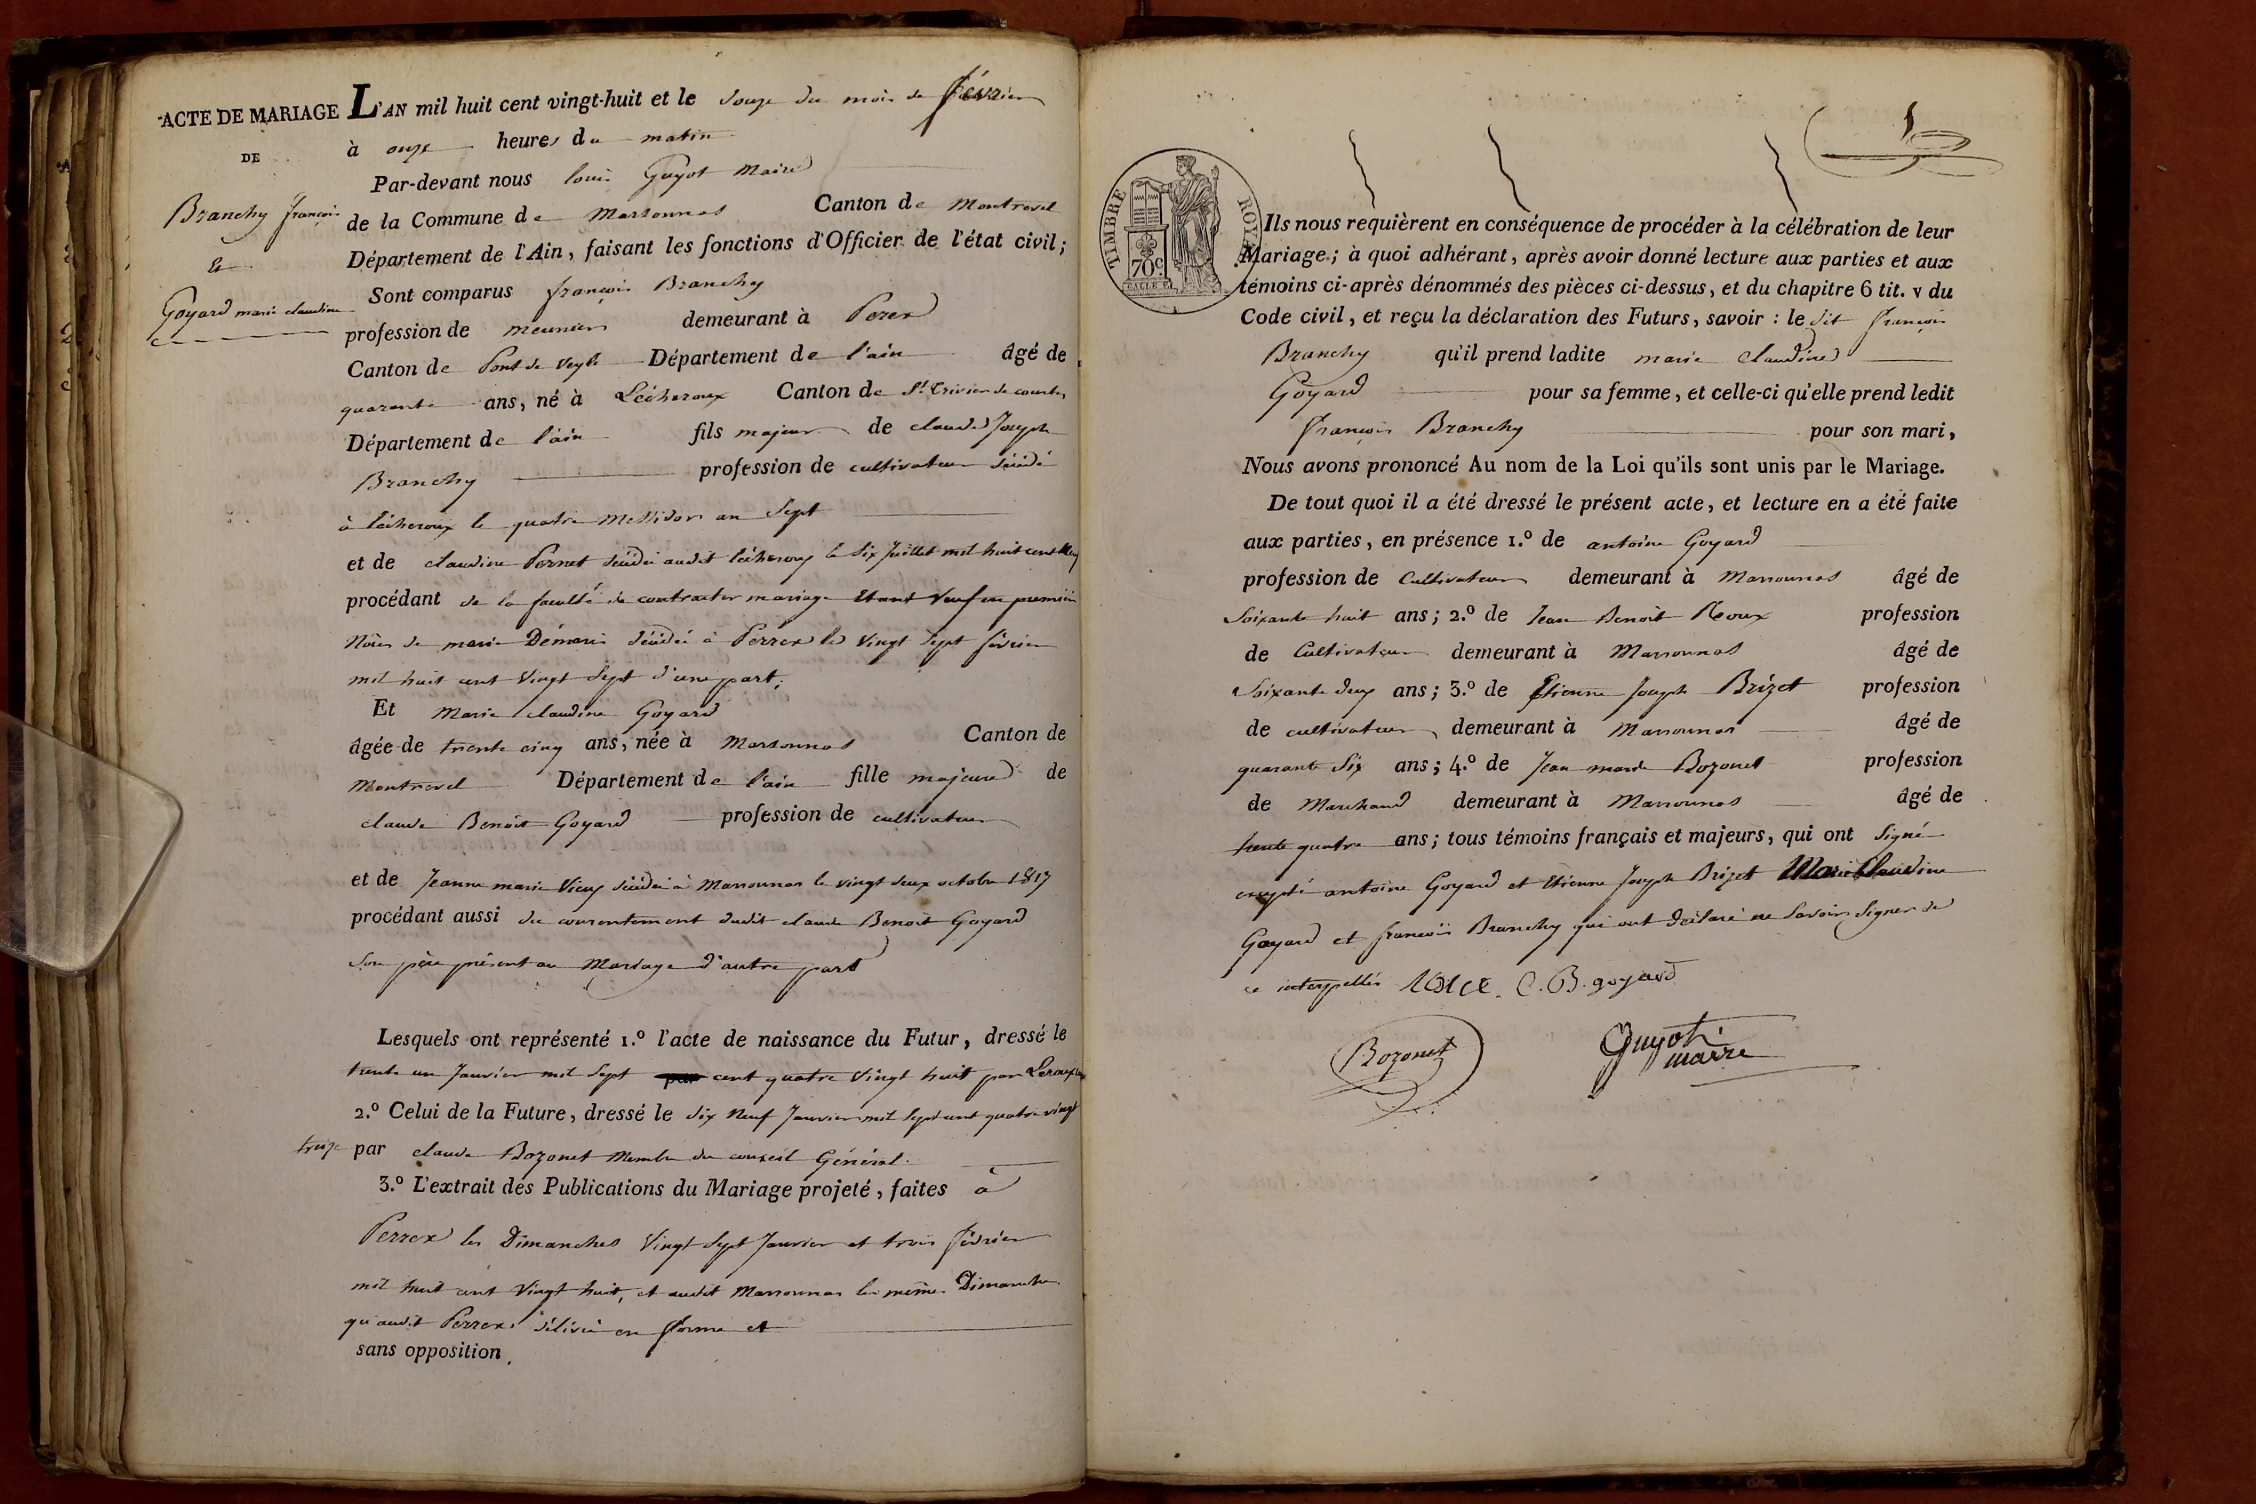 ACTE DE MARIAGE
DE
Branchy françois
&
Goyard marie claudine
L'AN mil huit cent vingt-huit et le douze du mois de février
à onze heures du matin
Par-devant nous louis Guyot Maire
de la Commune de Marsonnas Canton de Montrevel
Département de l'Ain, faisant les fonctions d'Officier de l'état civil;
Sont comparus françois Branchy
profession de meunier demeurant à Perex
Canton de Pont de Veyle Département de l'ain âgé de
quarante ans, né à Lécheroux Canton de St Trivier de courtes
Département de l'ain fils majeur de claude Joseph
Branchy profession de cultivateur décédé
à lécheroux le quatre Messidor an Sept
et de claudine Pernet décédée audit lécheroux le Six Juillet mil huit cent
procédant de la faculté de contracter mariage Etant Veuf en premières
Nôces de marie Démaris décédée à Perrex le Vingt Sept février
mil huit cent Vingt Sept d'une part;
Et Marie claudine Goyard
âgée de trente cinq ans, née à Marsonnas Canton de
Montrevel Département de l'ain fille majeure de
claude Benoit Goyard profession de cultivateur
et de Jeanne marie Vieux décédée à Marsonnas le vingt deux octobre 1817
procédant aussi du consentement dudit claude Benoit Goyard
Son père présent au Mariage d'autre part
Lesquels ont représenté 1.º l'acte de naissance du Futur, dressé le
trente un Janvier mil Sept cent quatre Vingt huit par
2.º Celui de la Future, dressé le dix Neuf Janvier mil Sept cent quatre vingt
treize par claude Bozonet Membre du conseil Général
3.º L'extrait des Publications du Mariage projeté, faites à
Perrex les Dimanches Vingt Sept Janvier et trois février
mil huit cent Vingt huit, et audit Marsonnas les mêmes Dimanches
qu'audit Perrex. délivré en forme et
sans opposition.
TIMBRE ROYAL
70c
Ils nous requièrent en conséquence de procéder à la célébration de leur
Mariage; à quoi adhérant, après avoir donné lecture aux parties et aux
témoins ci-après dénommés des pièces ci-dessus, et du chapitre 6 tit. v du
Code civil, et reçu la déclaration des Futurs, savoir : le dit françois
Branchy qu'il prend ladite marie claudine
Goyard pour sa femme, et celle-ci qu'elle prend ledit
françois Branchy pour son mari,
Nous avons prononcé Au nom de la Loi qu'ils sont unis par le Mariage.
De tout quoi il a été dressé le présent acte, et lecture en a été faite
aux parties, en présence 1.º de antoine Goyard
profession de Cultivateur demeurant à Marsonnas âgé de
Soixante huit ans; 2.º de Jean Benoit Roux profession
de Cultivateur demeurant à Marsonnas âgé de
Soixante deux ans; 3.º de Etienne Joseph Brizet profession
de cultivateur demeurant à Marsonnas âgé de
quarante Six ans; 4.º de Jean marie Bozonet profession
de Marchand demeurant à Marsonnas âgé de
trente quatre ans; tous témoins français et majeurs, qui ont Signé
excepté antoine Goyard et Etienne Joseph Brizet Marie Claudine
Goyard et françois Branchy qui ont déclaré ne Savoir Signer de
ce interpellés C. B. goyard
Bozonet
Guyot
maire